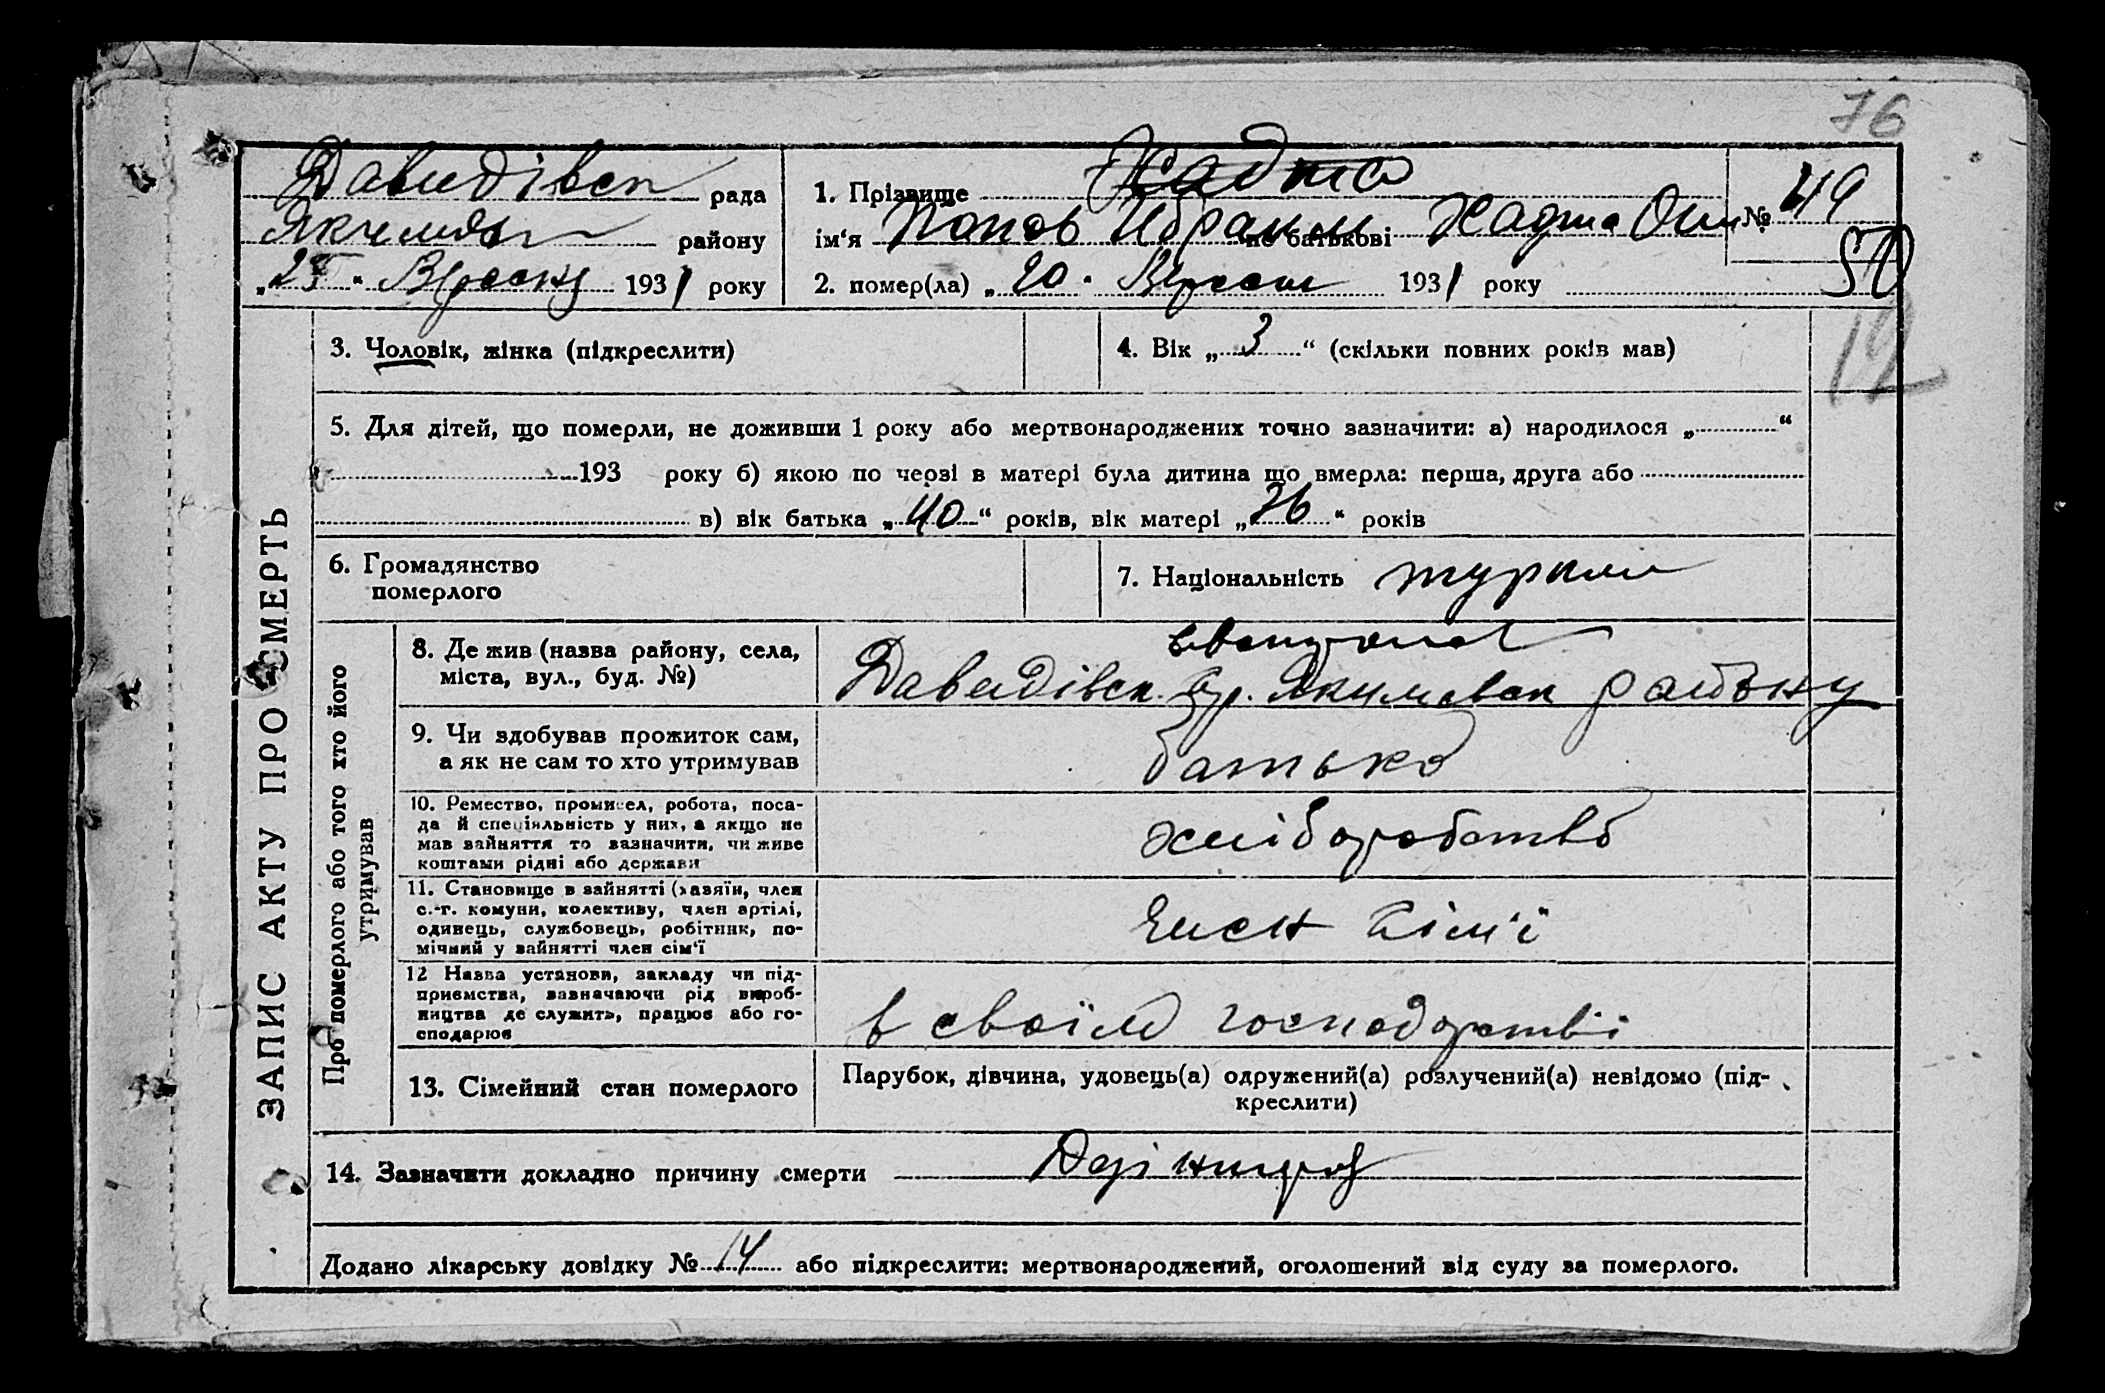 76
Давидівск рада
Якимівськ району
„ " Вересня 1931 року
1. Прізвище
ім'я Попов Ибраим по батькові Хаджа
№ 49
50
2. помер(ла) „20" Вересня 1931 року
12
ЗАПИС АКТУ ПРО СМЕРТЬ
3. Чоловік, жінка (підкреслити)
4. Вік „3" (скільки повних років мав)
5. Для дітей, що померли, не доживши 1 року або мертвонароджених точно зазначити: а) народилося „ "
193 року б) якою по черзі в матері була дитина що вмерла: перша, друга або
в) вік батька „40" років, вік матері „36" років
6. Громадянство
померлого
7. Національність
Про померлого або того хто його
утримував
8. Де жив (назва району, села,
міста, вул., буд. №)
Давидівск. Якимівск району
9. Чи здобував прожиток сам,
а як не сам то хто утримував
батько
10. Ремество, промисел, робота, поса-
да й спеціяльність у них, а якщо не
мав зайняття то зазначити, чи живе
коштами рідні або держави
хліборобство
11. Становище в зайнятті (хазяїн, член
с.-г. комуни, колективу, член артілі,
одинець, службовець, робітник, по-
мічний у зайнятті член сім'ї
член сім'ї
12 Назва установи, закладу чи під-
приємства, зазначаючи рід вироб-
ництва де служить, працює або го-
сподарює
в своїм господарстві
13. Сімейний стан померлого
Парубок, дівчина, удовець(а) одружений(а) розлучений(а) невідомо (під-
креслити)
14. Зазначити докладно причину смерти
Додано лікарську довідку № 14 або підкреслити: мертвонароджений, оголошений від суду за померлого.